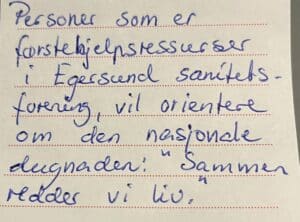 Personer som er
førstehjelpsressurser
i Egersund sanitets-
forening, vil orientere
om den nasjonale
dugnaden: "Sammen
redder vi liv."